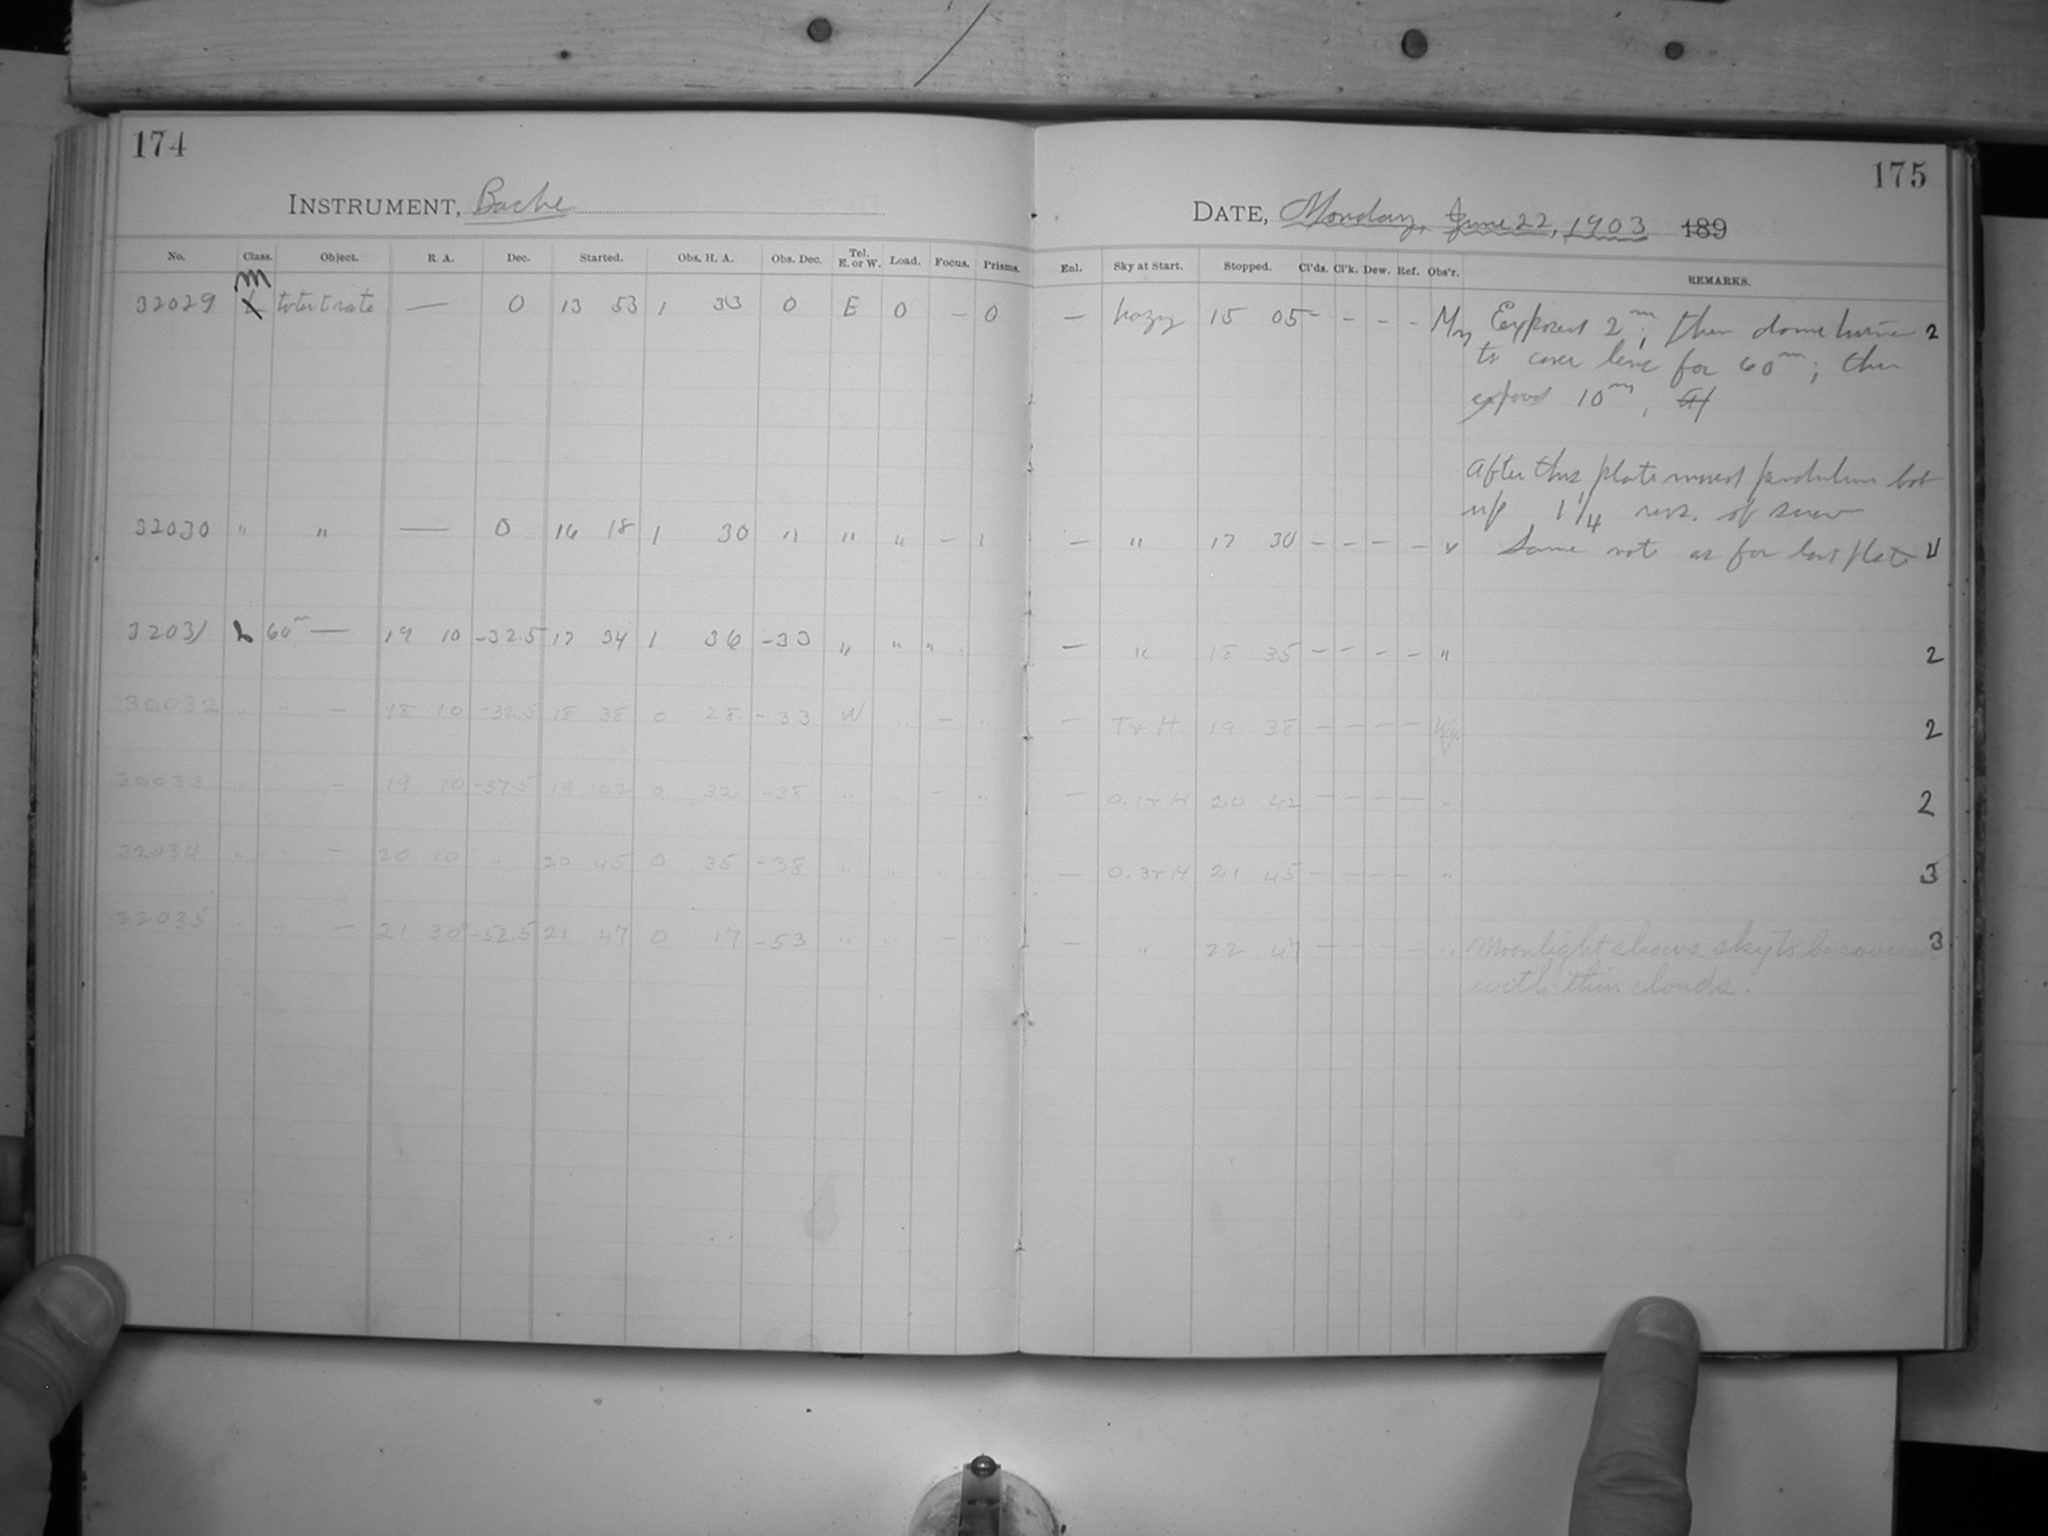 174
175
INSTRUMENT, Bache
DATE, Monday, June 22, 1903 189
No. Class. Object. R. A. Dec. Started. Obs. H. A. Obs. Dec. Tel. E. or W. Load. Focus. Prisms. Enl. Sky at Start. Stopped. Cl'ds. Cl'k. Dew. Ref. Obs'r. REMARKS.
m
32029 L to test rate — 0 13 53 1 33 0 E 0 – 0 — hazy 15 05 – – – – My Exposed 2m; then dome turned 2
to cover lens for 60m; then
exposed 10m,
After this plate moved pendulum bob
up 1 1/4 revs. of screw
32030 " " — 0 16 18 1 30 " " " – — " 17 30 – – – – Same note as for last plate
32031 L 60m — 19 10 -32.5 17 34 1 36 -33 " " " — " 18 35 – – – – " 2
32032 " " – 18 10 -32.5 18 38 0 28 -33 W " – " — T+H 19 38 – – – – 2
32033 " – 19 10 -37.5 19 42 0 32 -38 " " – " — 0.1+H 20 42 – – – – " 2
32034 " " – 20 10 " 20 45 0 35 -38 " " " — 0.3+H 21 45 – – – – " 3
32035 " " – 21 30 -52.5 21 47 0 17 -53 " " – " — " 22 47 – – – – " Moonlight shows sky to be covered 3
with thin clouds.